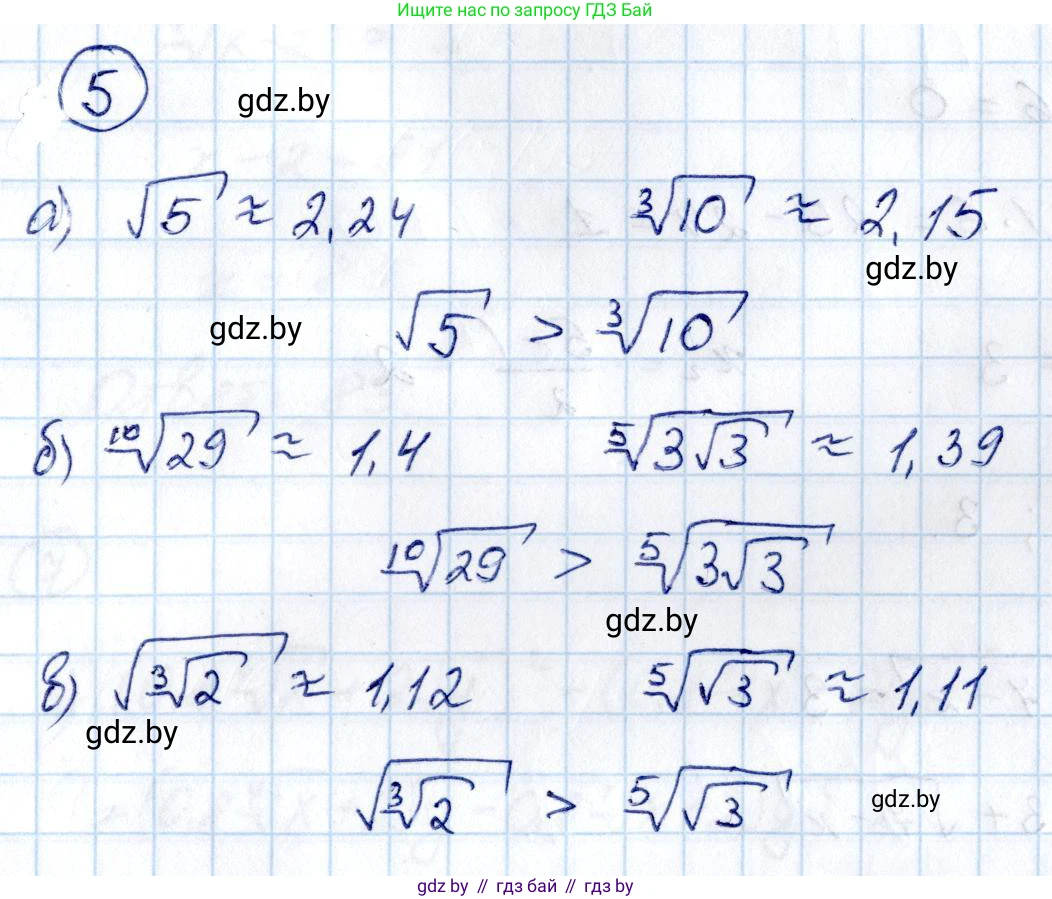 Ищите нас по запросу ГДЗ Бай
5 gdz.by
а) √5 ≈ 2,24 ∛10 ≈ 2,15
gdz.by
gdz.by √5 > ∛10
б) ¹⁰√29 ≈ 1,4 ⁵√(3√3) ≈ 1,39
¹⁰√29 > ⁵√(3√3)
gdz.by
в) √(∛2) ≈ 1,12 ⁵√(√3) ≈ 1,11
gdz.by
√(∛2) > ⁵√(√3) gdz.by
gdz by // гдз бай // gdz by